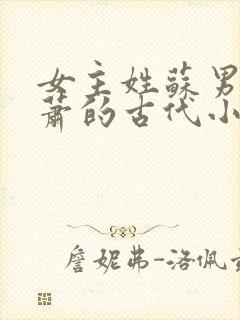 女主姓蘇男
蕭的古代小
詹妮弗-洛佩茲